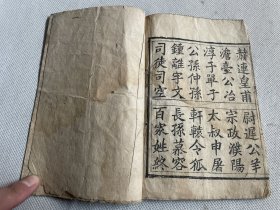 赫連皇甫 尉遲公羊
澹臺公冶 宗政濮陽
淳于單于 太叔申屠
公孫仲孫 軒轅令狐
鍾離宇文 長孫慕容
司徒司空 百家姓終